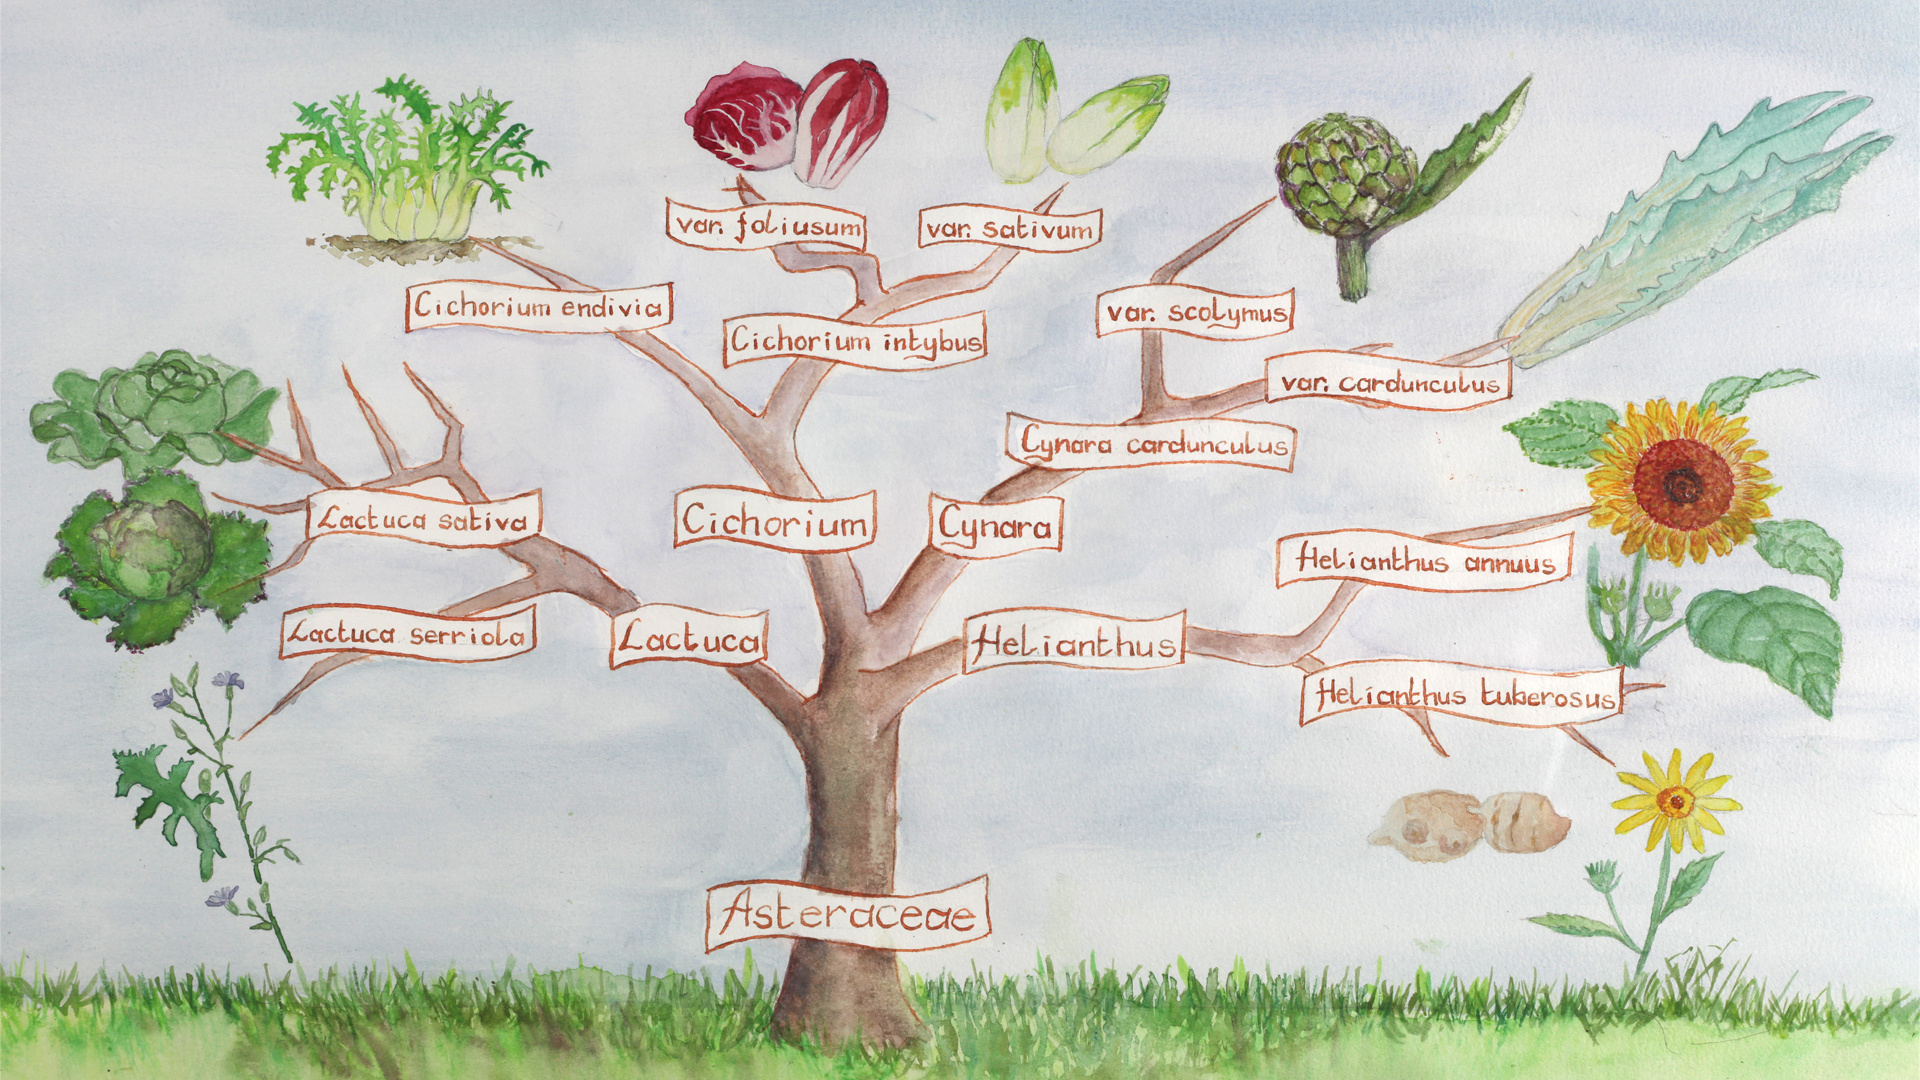 var. foliusum
var. sativum
Cichorium endivia
Cichorium intybus
var. scolymus
var. cardunculus
Cynara cardunculus
Lactuca sativa
Cichorium
Cynara
Helianthus annuus
Lactuca serriola
Lactuca
Helianthus
Helianthus tuberosus
Asteraceae